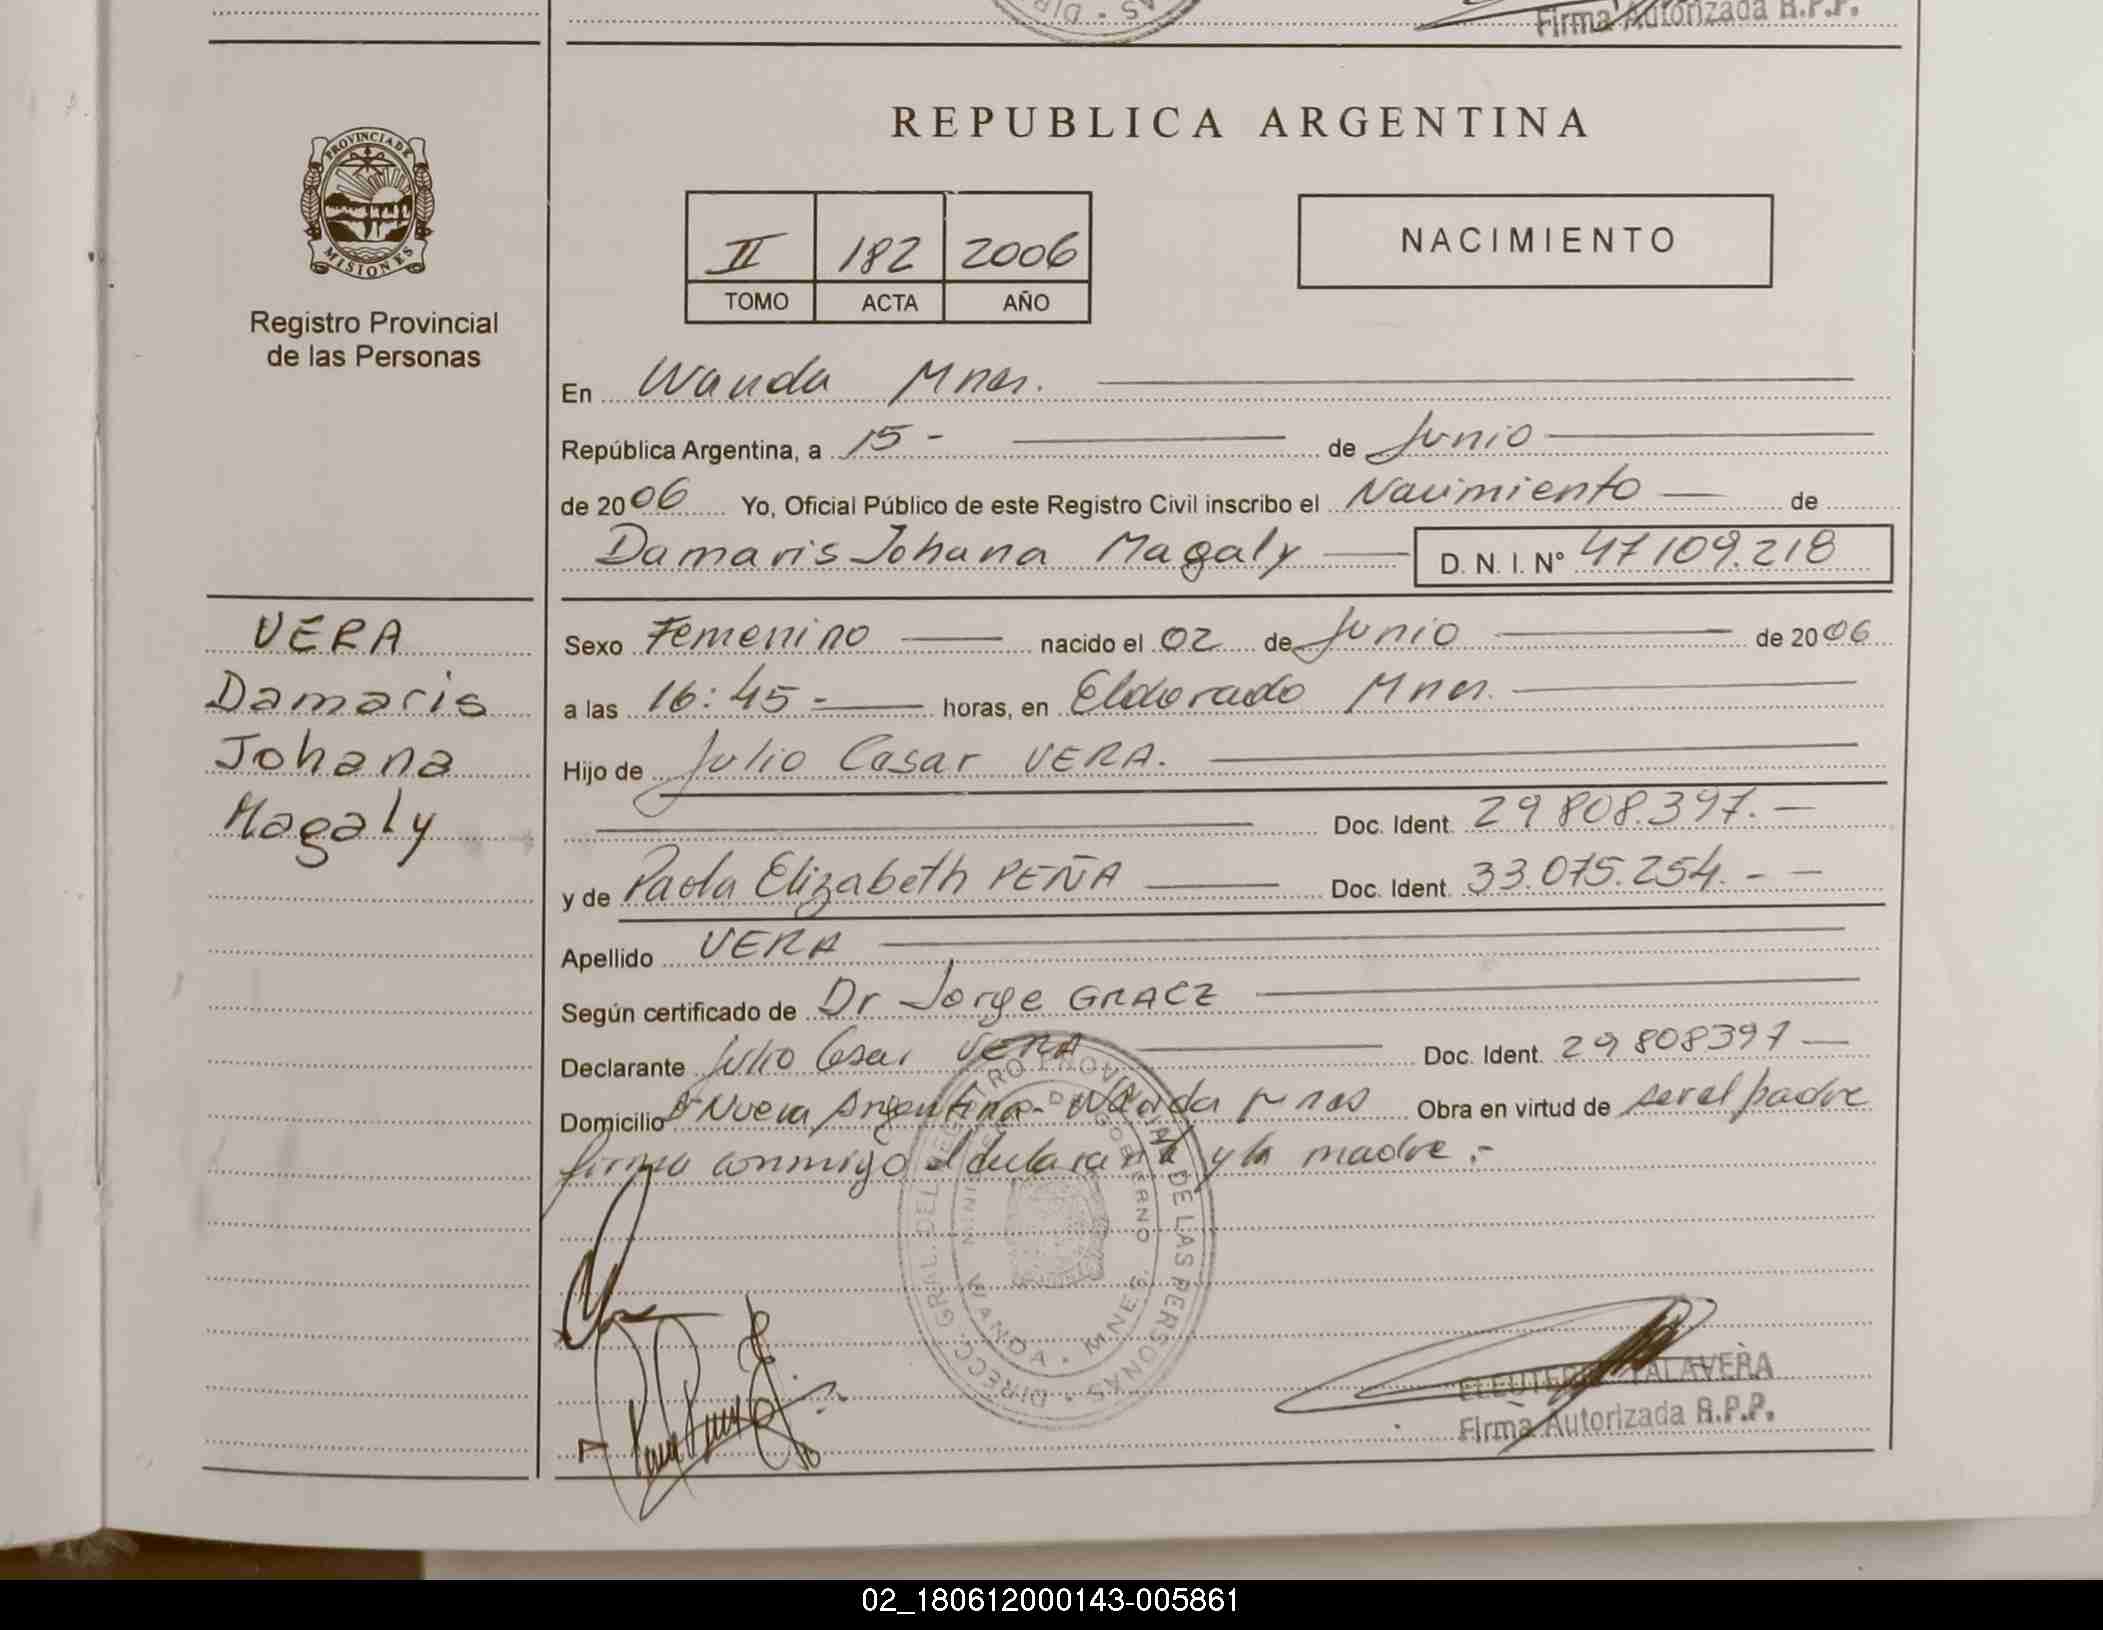 Firma Autorizada R.P.P.
REPUBLICA ARGENTINA
PROVINCIA DE
MISIONES
II 182 2006
TOMO ACTA AÑO
NACIMIENTO
Registro Provincial
de las Personas
En Wanda Mnes.
República Argentina, a 15 - de Junio
de 2006 Yo, Oficial Público de este Registro Civil inscribo el Nacimiento de
Damaris Johana Magaly D. N. I. N° 47109.218
VERA
Damaris
Johana
Magaly
Sexo Femenino nacido el 02 de Junio de 2006
a las 16:45 - horas, en Eldorado Mnes.
Hijo de Julio Cesar VERA.
Doc. Ident. 29 808.397. -
y de Paola Elizabeth PEÑA Doc. Ident. 33.075.254. - -
Apellido VERA
Según certificado de Dr Jorge GRACZ
Declarante Julio Cesar VERA Doc. Ident. 29 808397 -
Domicilio Bº Nueva Argentina - Wanda Mnes Obra en virtud de ser el padre
firma conmigo el declarante y la madre . -
DIRECC. GRAL. DEL REGISTRO PROVINCIAL DE LAS PERSONAS
MINISTERIO DE GOBIERNO
WANDA - MNES.
TALAVERA
Firma Autorizada R.P.P.
02_180612000143-005861